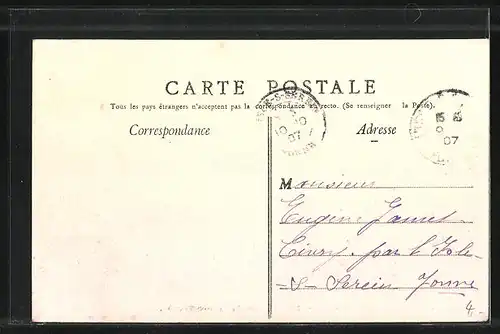 CARTE POSTALE
Tous les pays étrangers n'acceptent pas la correspondance au recto. (Se renseigner à la Poste).
Correspondance
Adresse
Monsieur
Eugène
Civry par l'Isle-
-s-Serein Yonne
07
07
4,